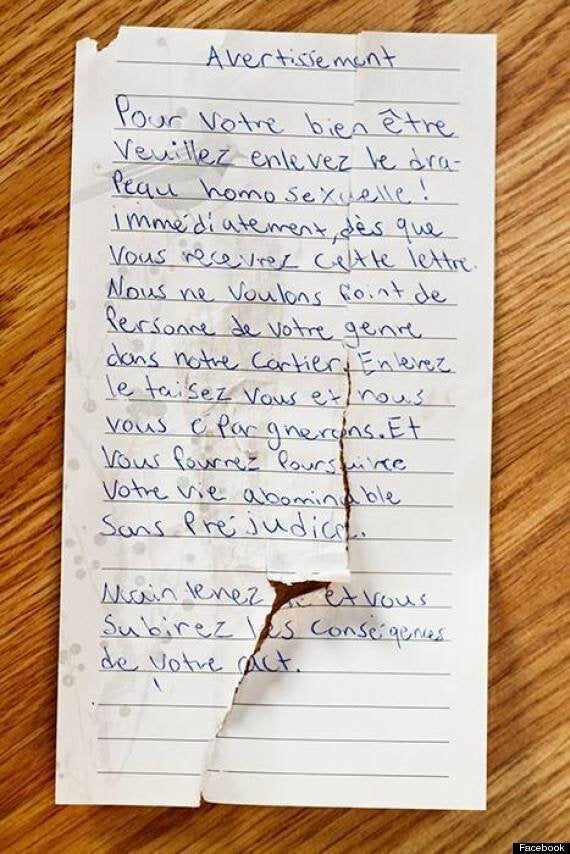 Avertissement
Pour votre bien être
veuillez enlevez le dra-
peau homosexuelle!
immédiatement, dès que
vous recevrez cette lettre.
Nous ne voulons point de
personne de votre genre
dans notre cartier. Enlevez
le taisez vous et nous
vous épargnerons. Et
vous pourrez poursuivre
votre vie abominable
sans préjudice.
Maintenez et vous
subirez les conséigences
de votre act.
Facebook